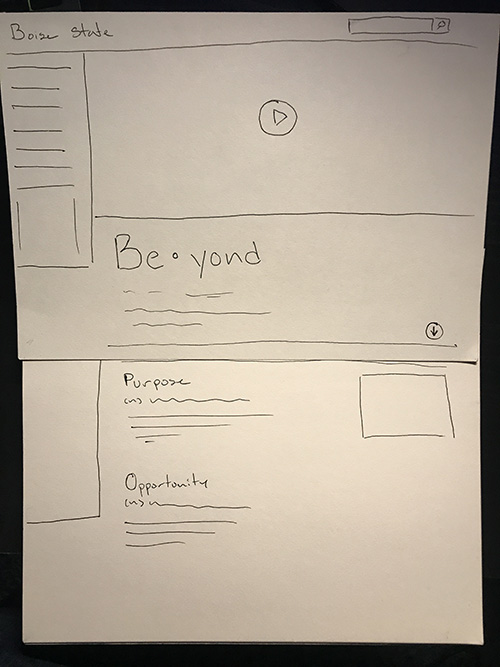 Boise State
Be•yond
Purpose
(n)
Opportunity
(n)